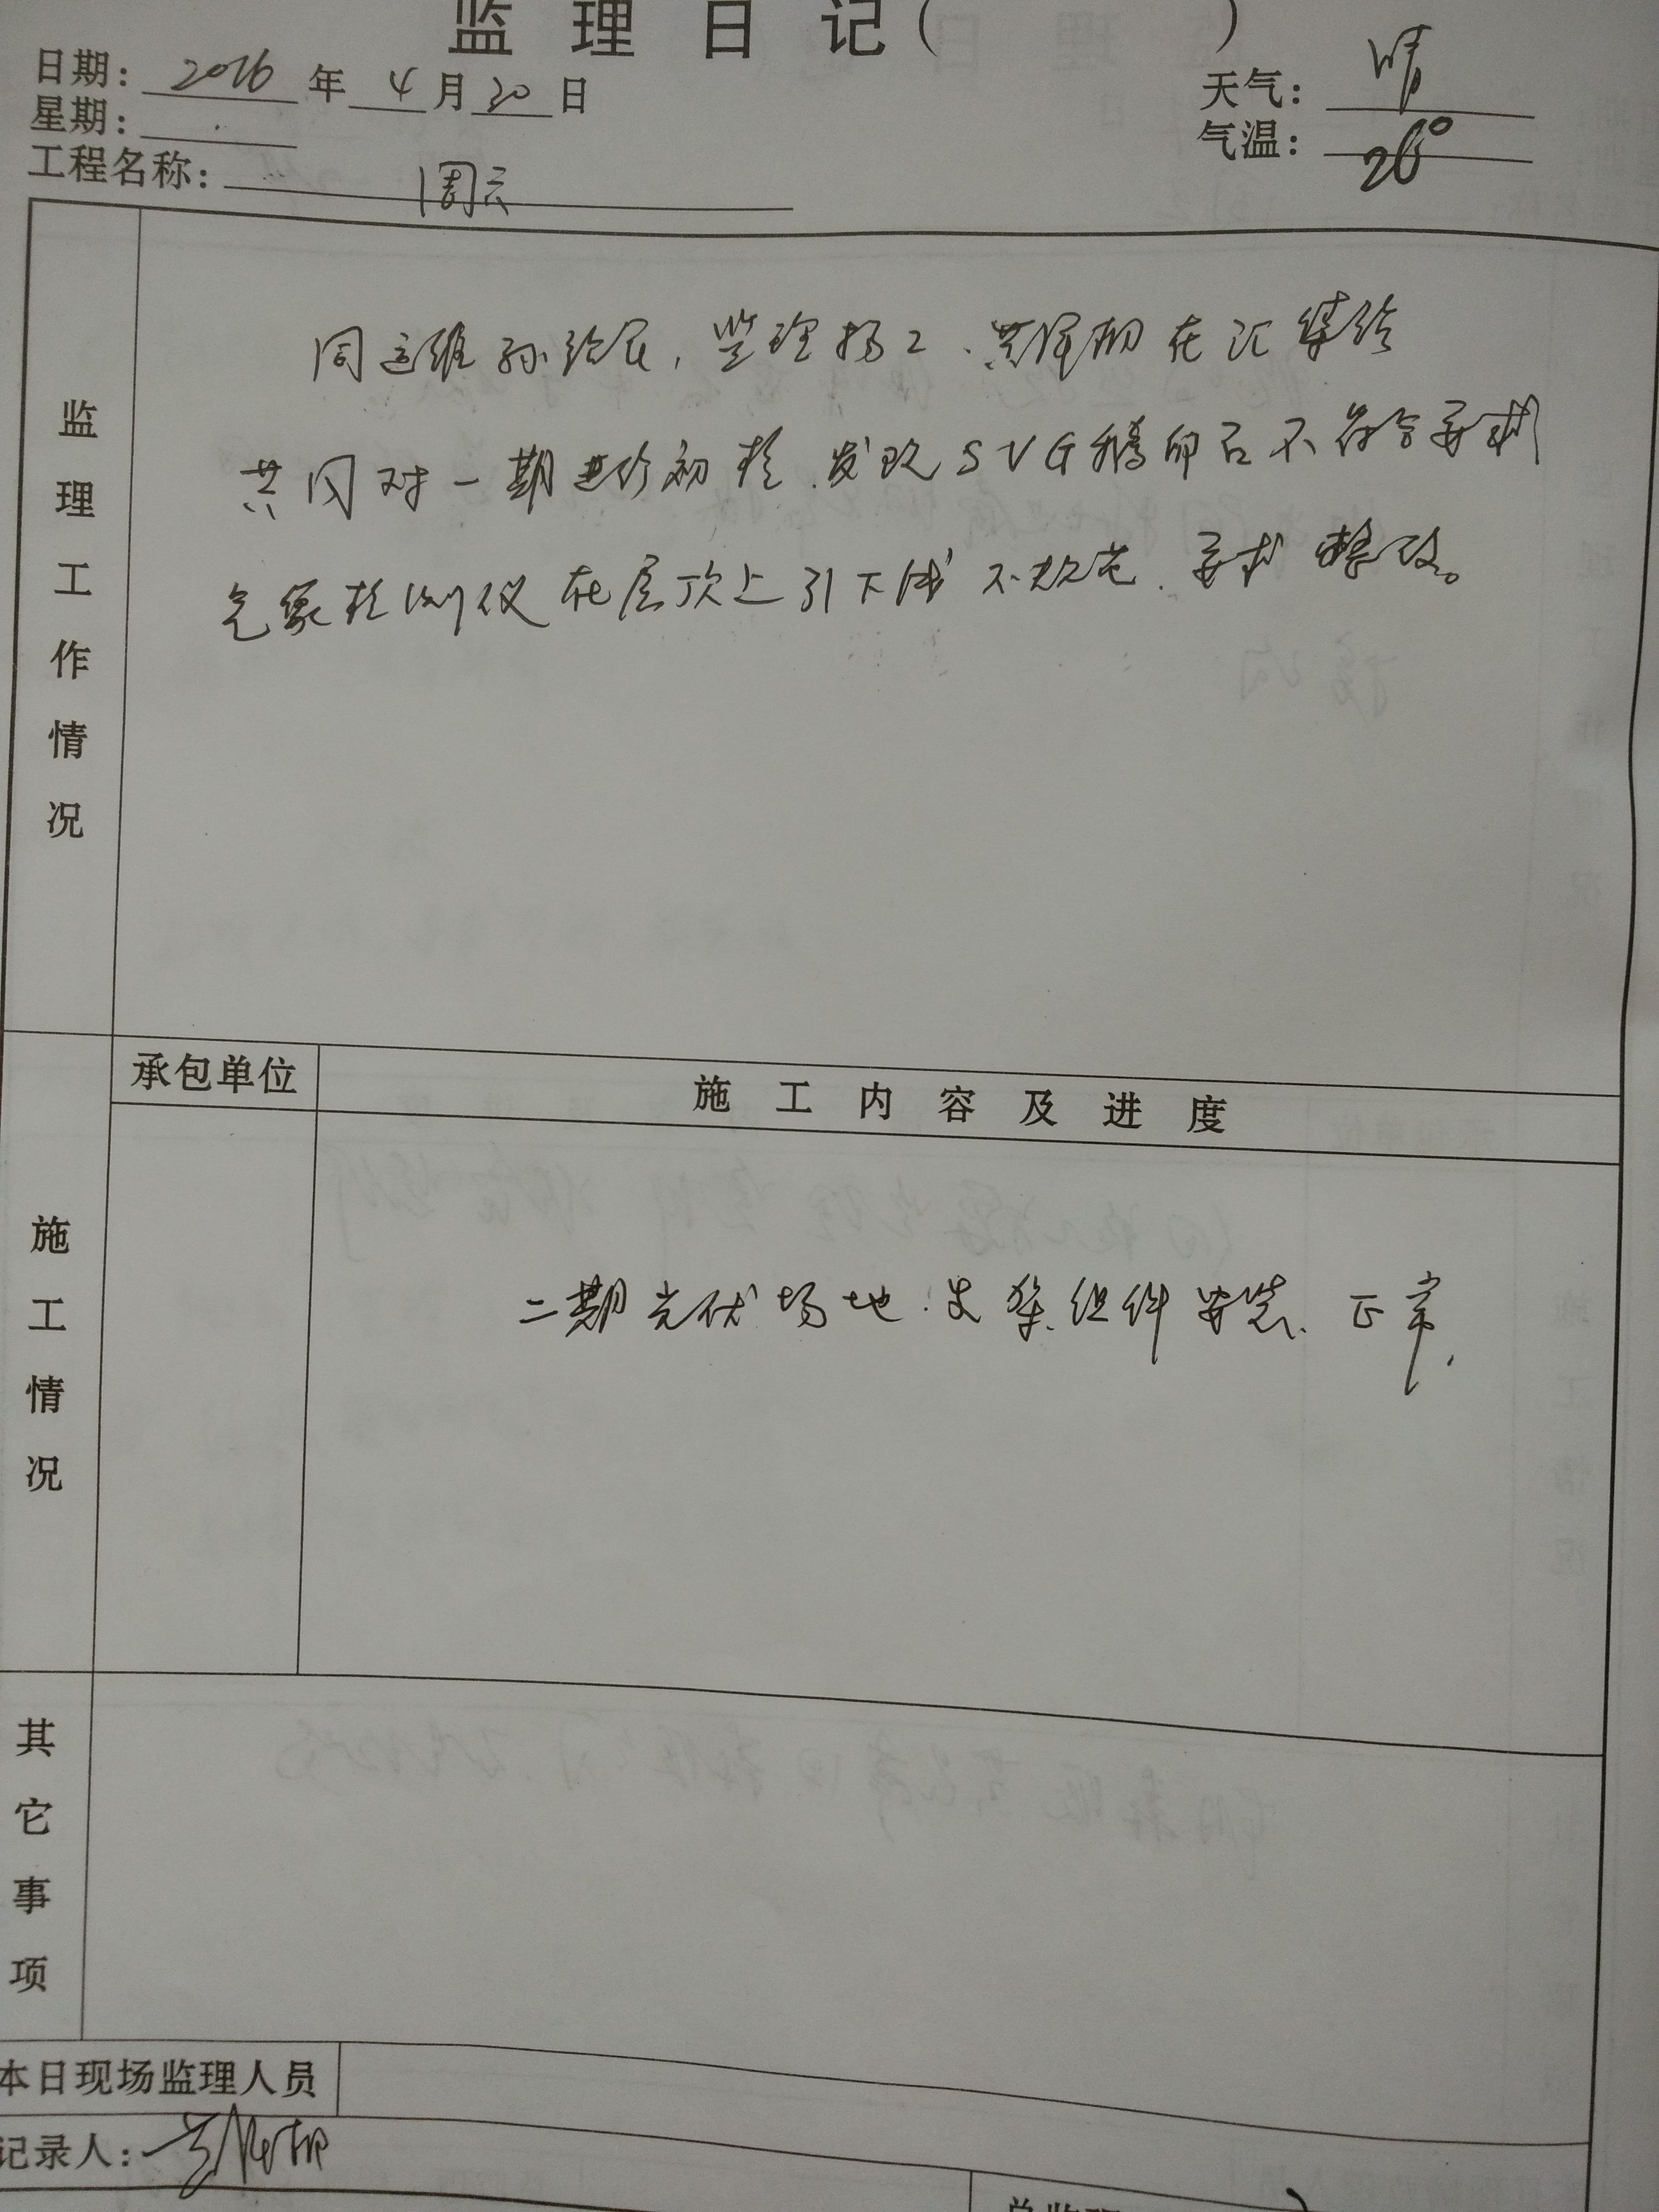 监理日记( )
日期: 2016 年 4 月 20 日
天气: 晴
星期:
气温: 26°
工程名称: 周云
监理工作情况
同运维孙总, 监理杨工、在汇集站
共同对一期进行初检.发现SVG鹅卵石不符合要求
气象检测仪在屋顶上引下线不规范.要求整改。
承包单位
施工内容及进度
施工情况
二期光伏场地.支架.组件安装.正常.
其它事项
本日现场监理人员
记录人:
总监理